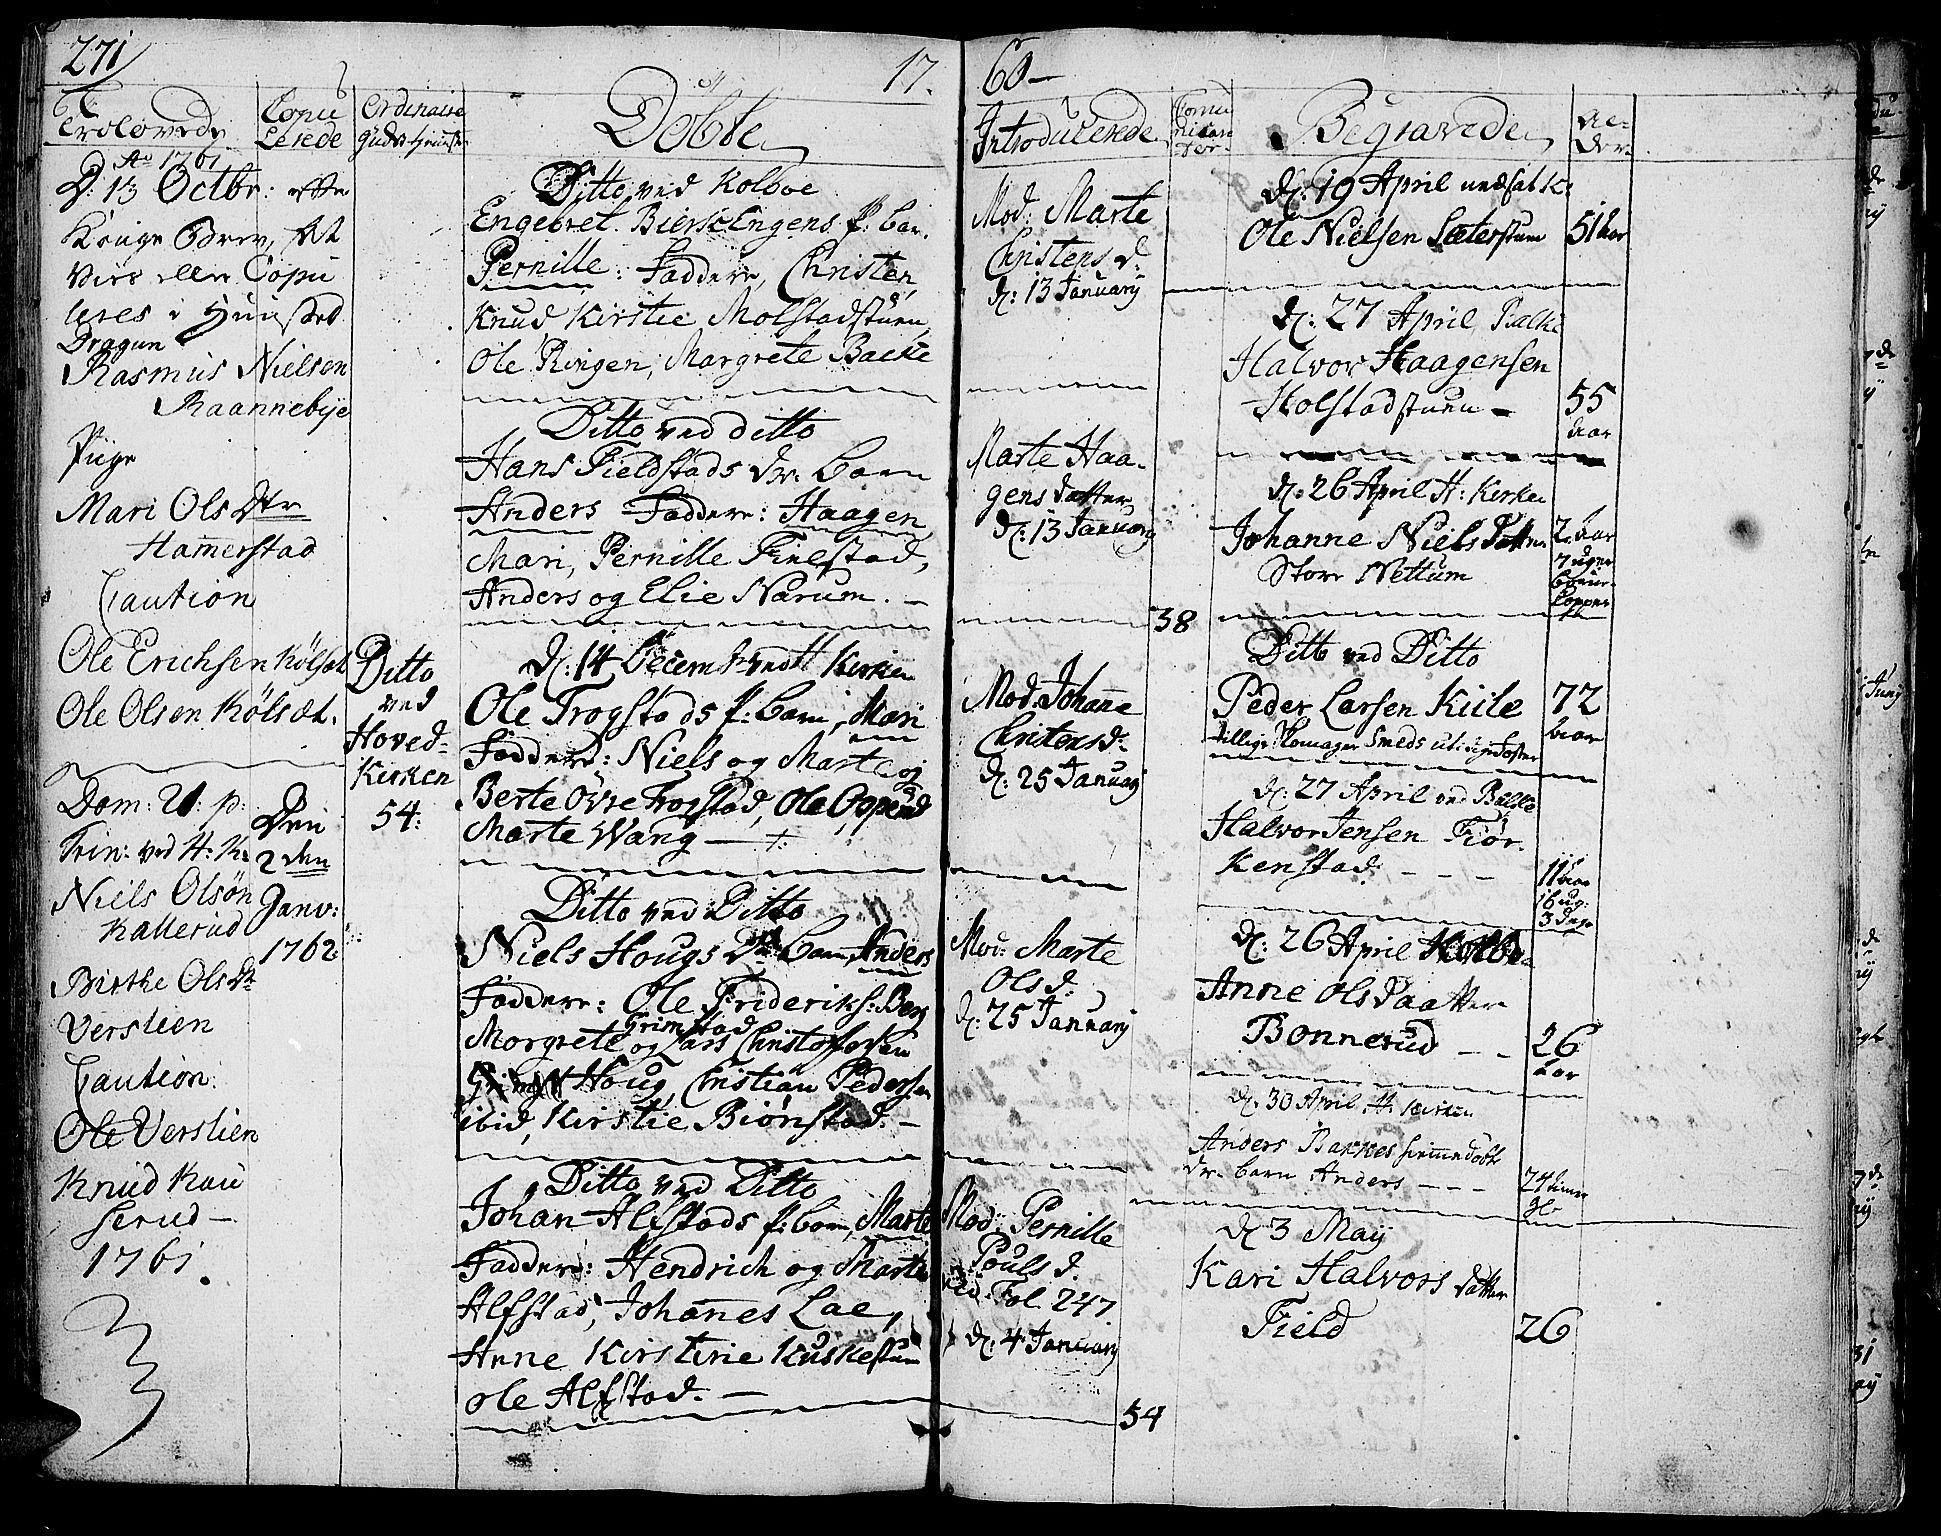 271
17.
60
Trolovede
Copu
lerede
Ordinaire
Döbte
Introducerede
Begravede
Ao 1761
D: 13 Octbr: efter
Konge Brev, At
vies eller Copu
leres i Huuset
Dragun
Rasmus Nielsen
Raannebye
Pige
Mari Ols Dtr
Hamerstad
Caution
Ole Erichsen Kölset
Ole Olsen Kölset.
Dom: 21: p:
Trin: ved H: K:
Niels Olsön
Kallerud
Birthe Olsdr
Verslien
Caution:
Ole Verslien
Knud Kau
serud
1761.
Den
2den
Janv:
1762.
Ditto
ved
Hoved-
Kirken
54:
Ditto ved Kolboe
Engebret BierkeEngens P: Bar.
Pernille: Faddere, Christen,
Knud, Kirstie Molstadstuen,
Ole Ringen, Margrete Backe
Ditto ved ditto
Hans Fieldstads dr. Barn
Anders Faddere: Haagen,
Mari, Pernille Finestad,
Anders og Elie Narum.
D: 14 Decemb: ved H Kirken
Ole Trogstads P: Barn, Mari
Faddere: Niels og Marte og
Berte Övre Trogstad, Ole Oppeud
Marte Wang
Ditto ved Ditto
Niels Hougs Dr: Barn, Anders
Faddere: Ole Frideriks: Berg
Grimstad
Morgrete og Lars Christophersen
Houg, Cristian Pedersen
ibid, Kirstie Biönstad.
Ditto ved Ditto
Johan Alfstads P: barn, Marte
Faddere: Hendrich og Marte
Alfstad, Johannes Lae,
Anne Kirstine Kuskestuen
Ole Alfstad.
Mod: Marte
Christens d.
d: 13 January
Marte Haa-
gens datter
d: 13 January
38
Mod: Johane
Christens d:
d: 25 January
Mod: Marte
Ols d.
d: 25 January
Mod: Pernille
Pouls d.
Fol. 247
d: 4 January
54
d: 19 April
Ole Nielsen Sæterstuen
51 Aar
d: 27 April, Balke
Halvor Haagensen
Holstadstuen
55
Aar
d: 26 April H: Kirken
Johanne Niels datter
Store Nettum
2 Aar
7 uger
Ditto ved Ditto
Peder Larsen Kiile
72
Aar
d: 27 April ved Balke
Halvor Jensen Fiör-
kenstad.
11 Aar
16 ug:
3 dage
d: 26 April Kolbo
Anne Ols daatter
Bonnerud
26
Aar
d: 30 April H Kirken
Anders Bakkes hiemmedöbt
dr. barn Anders
24 timer
gl.
d 3 Maij
Kari Halvors datter
Field
26